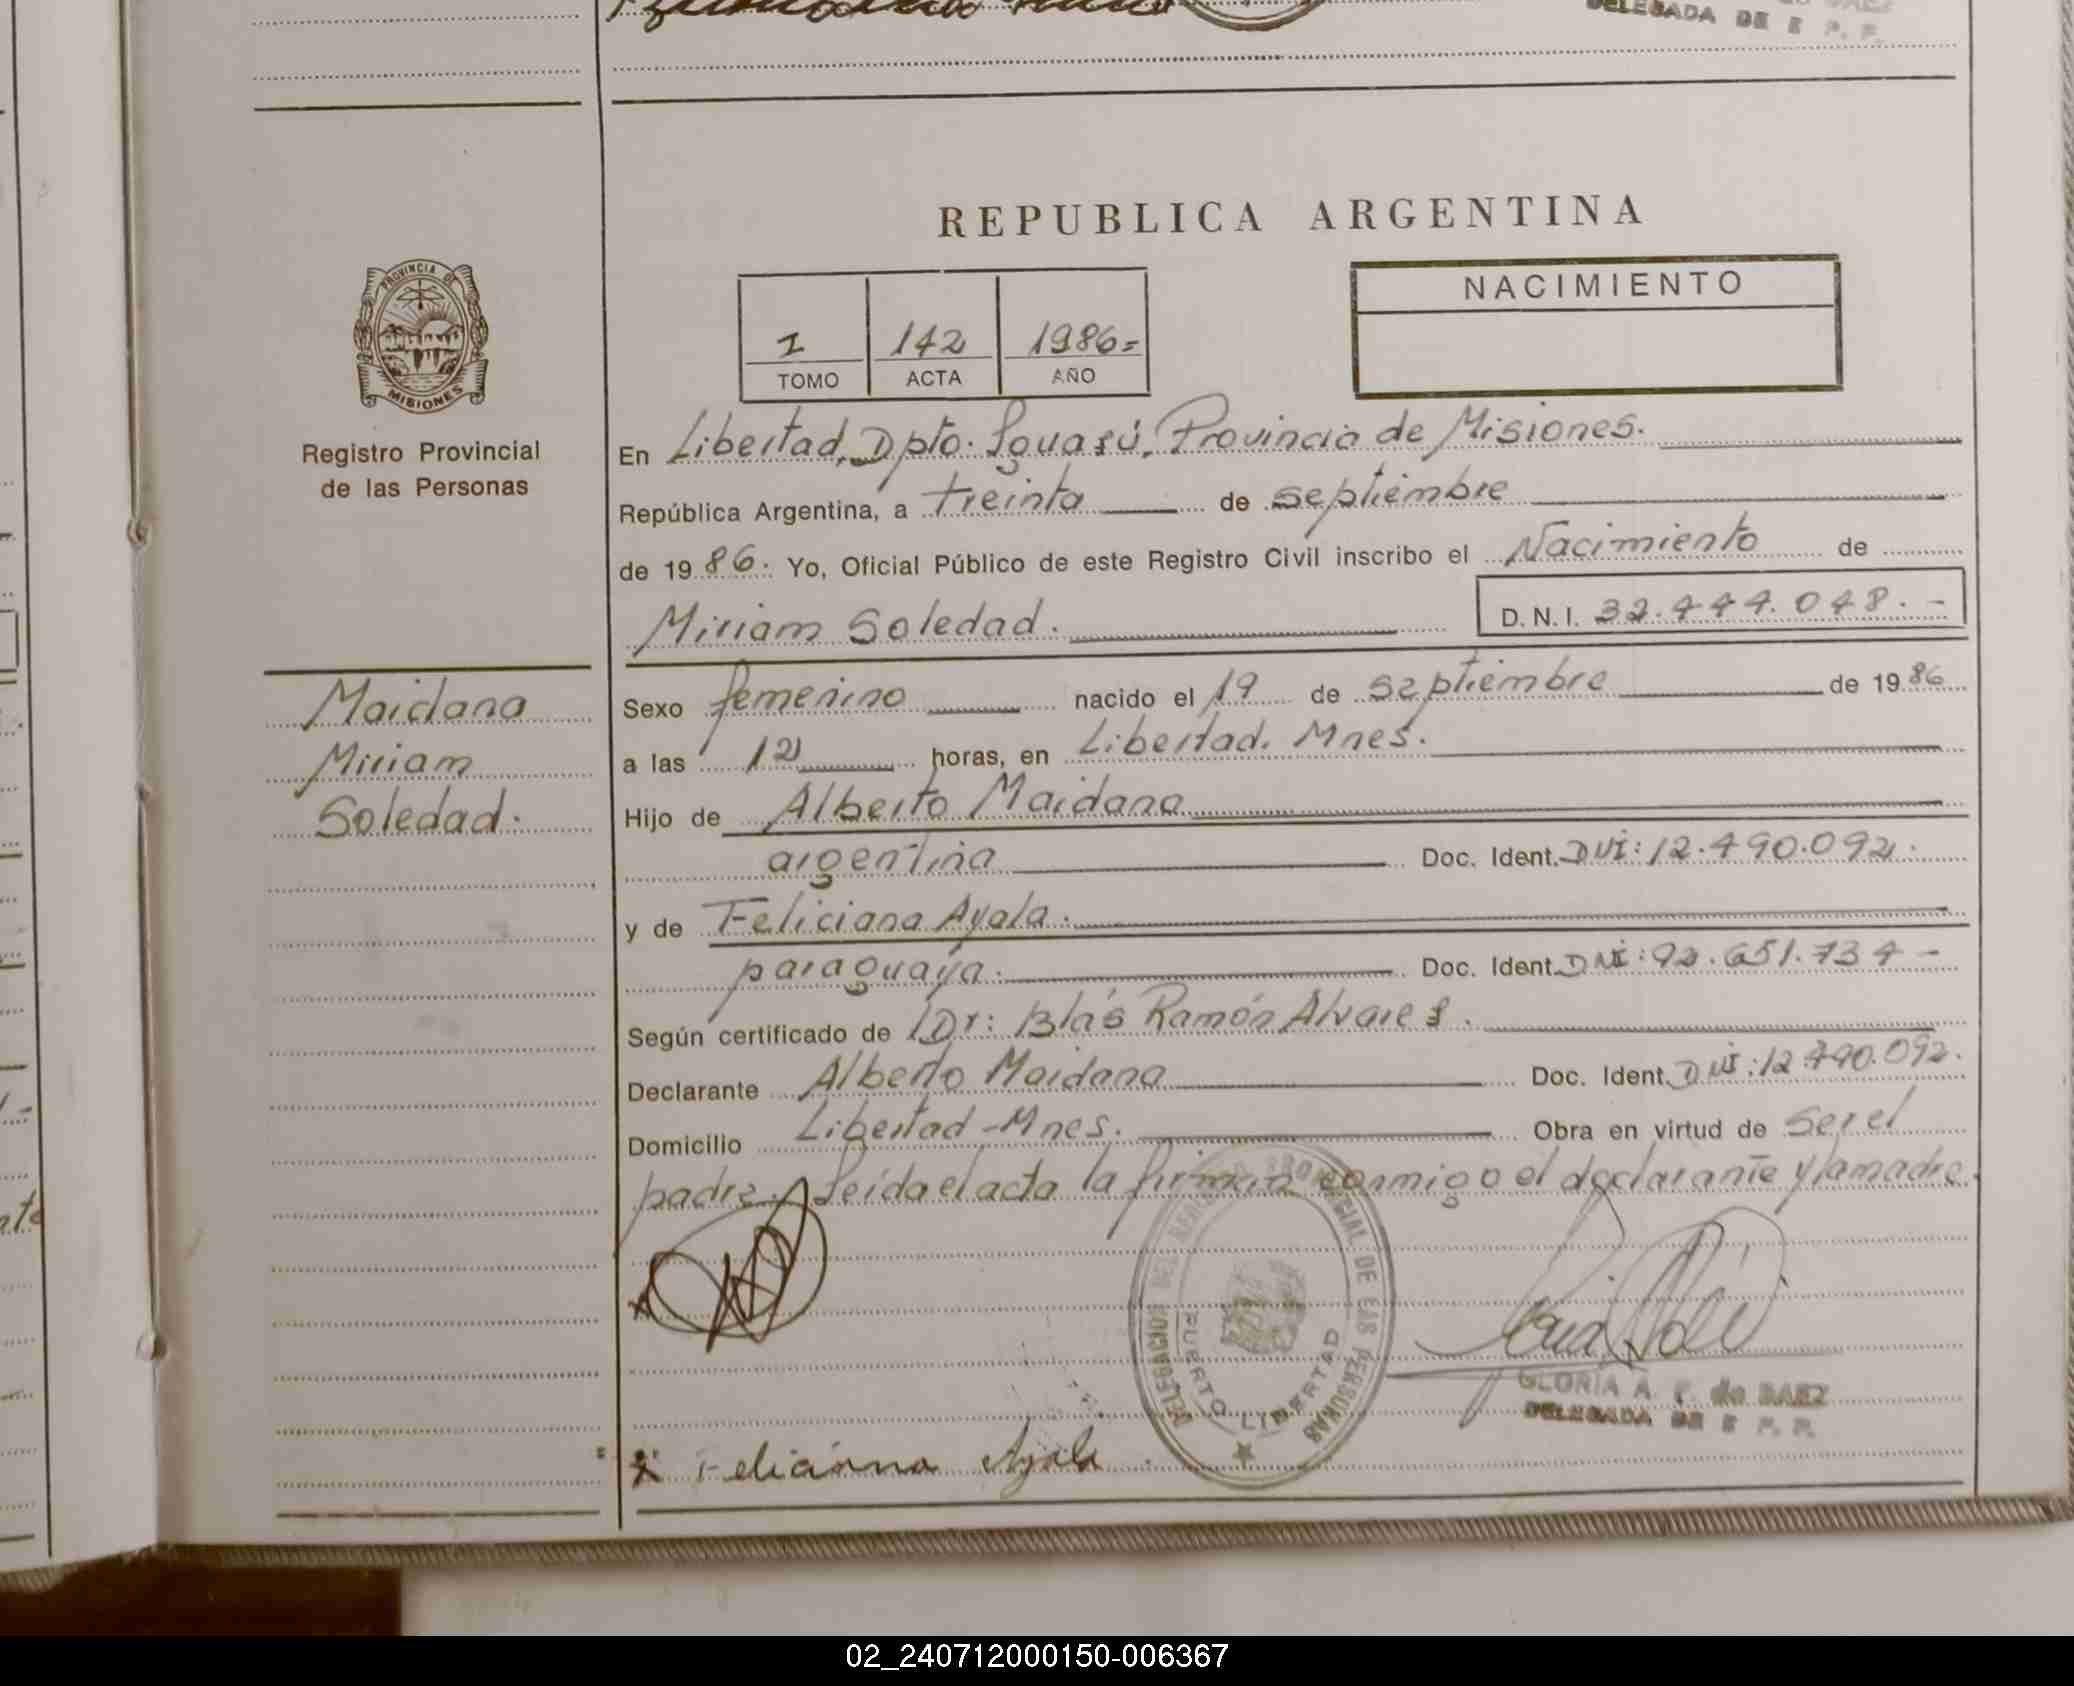 DELEGADA DE E P. F.
REPUBLICA ARGENTINA
PROVINCIA DE
MISIONES
Registro Provincial
de las Personas
I 142 1986=
TOMO ACTA AÑO
NACIMIENTO
En Libertad, Dpto. Iguazú, Provincia de Misiones.
República Argentina, a treinta de septiembre
de 1986. Yo, Oficial Público de este Registro Civil inscribo el Nacimiento de
Miriam Soledad. D.N.I. 32.444.048.-
Maidana
Miriam
Soledad.
Sexo femenino nacido el 19 de septiembre de 1986
a las 12 horas, en Libertad. Mnes.
Hijo de Alberto Maidana
argentina Doc. Ident. DNI: 12.490.092.
y de Feliciana Ayala.
paraguaya. Doc. Ident. DNI: 92.651.734-
Según certificado de Dr: Blás Ramón Alvarez.
Declarante Alberto Maidana Doc. Ident. DNI: 12.490.092.
Domicilio Libertad-Mnes. Obra en virtud de ser el
padre. Leída el acta la firman conmigo el declarante y la madre.
DELEGACION DEL REGISTRO PROVINCIAL DE LAS PERSONAS
PUERTO LIBERTAD
GLORIA A. F. de BAEZ
DELEGADA DE E P. F.
x Feliciana Ayala
02_240712000150-006367